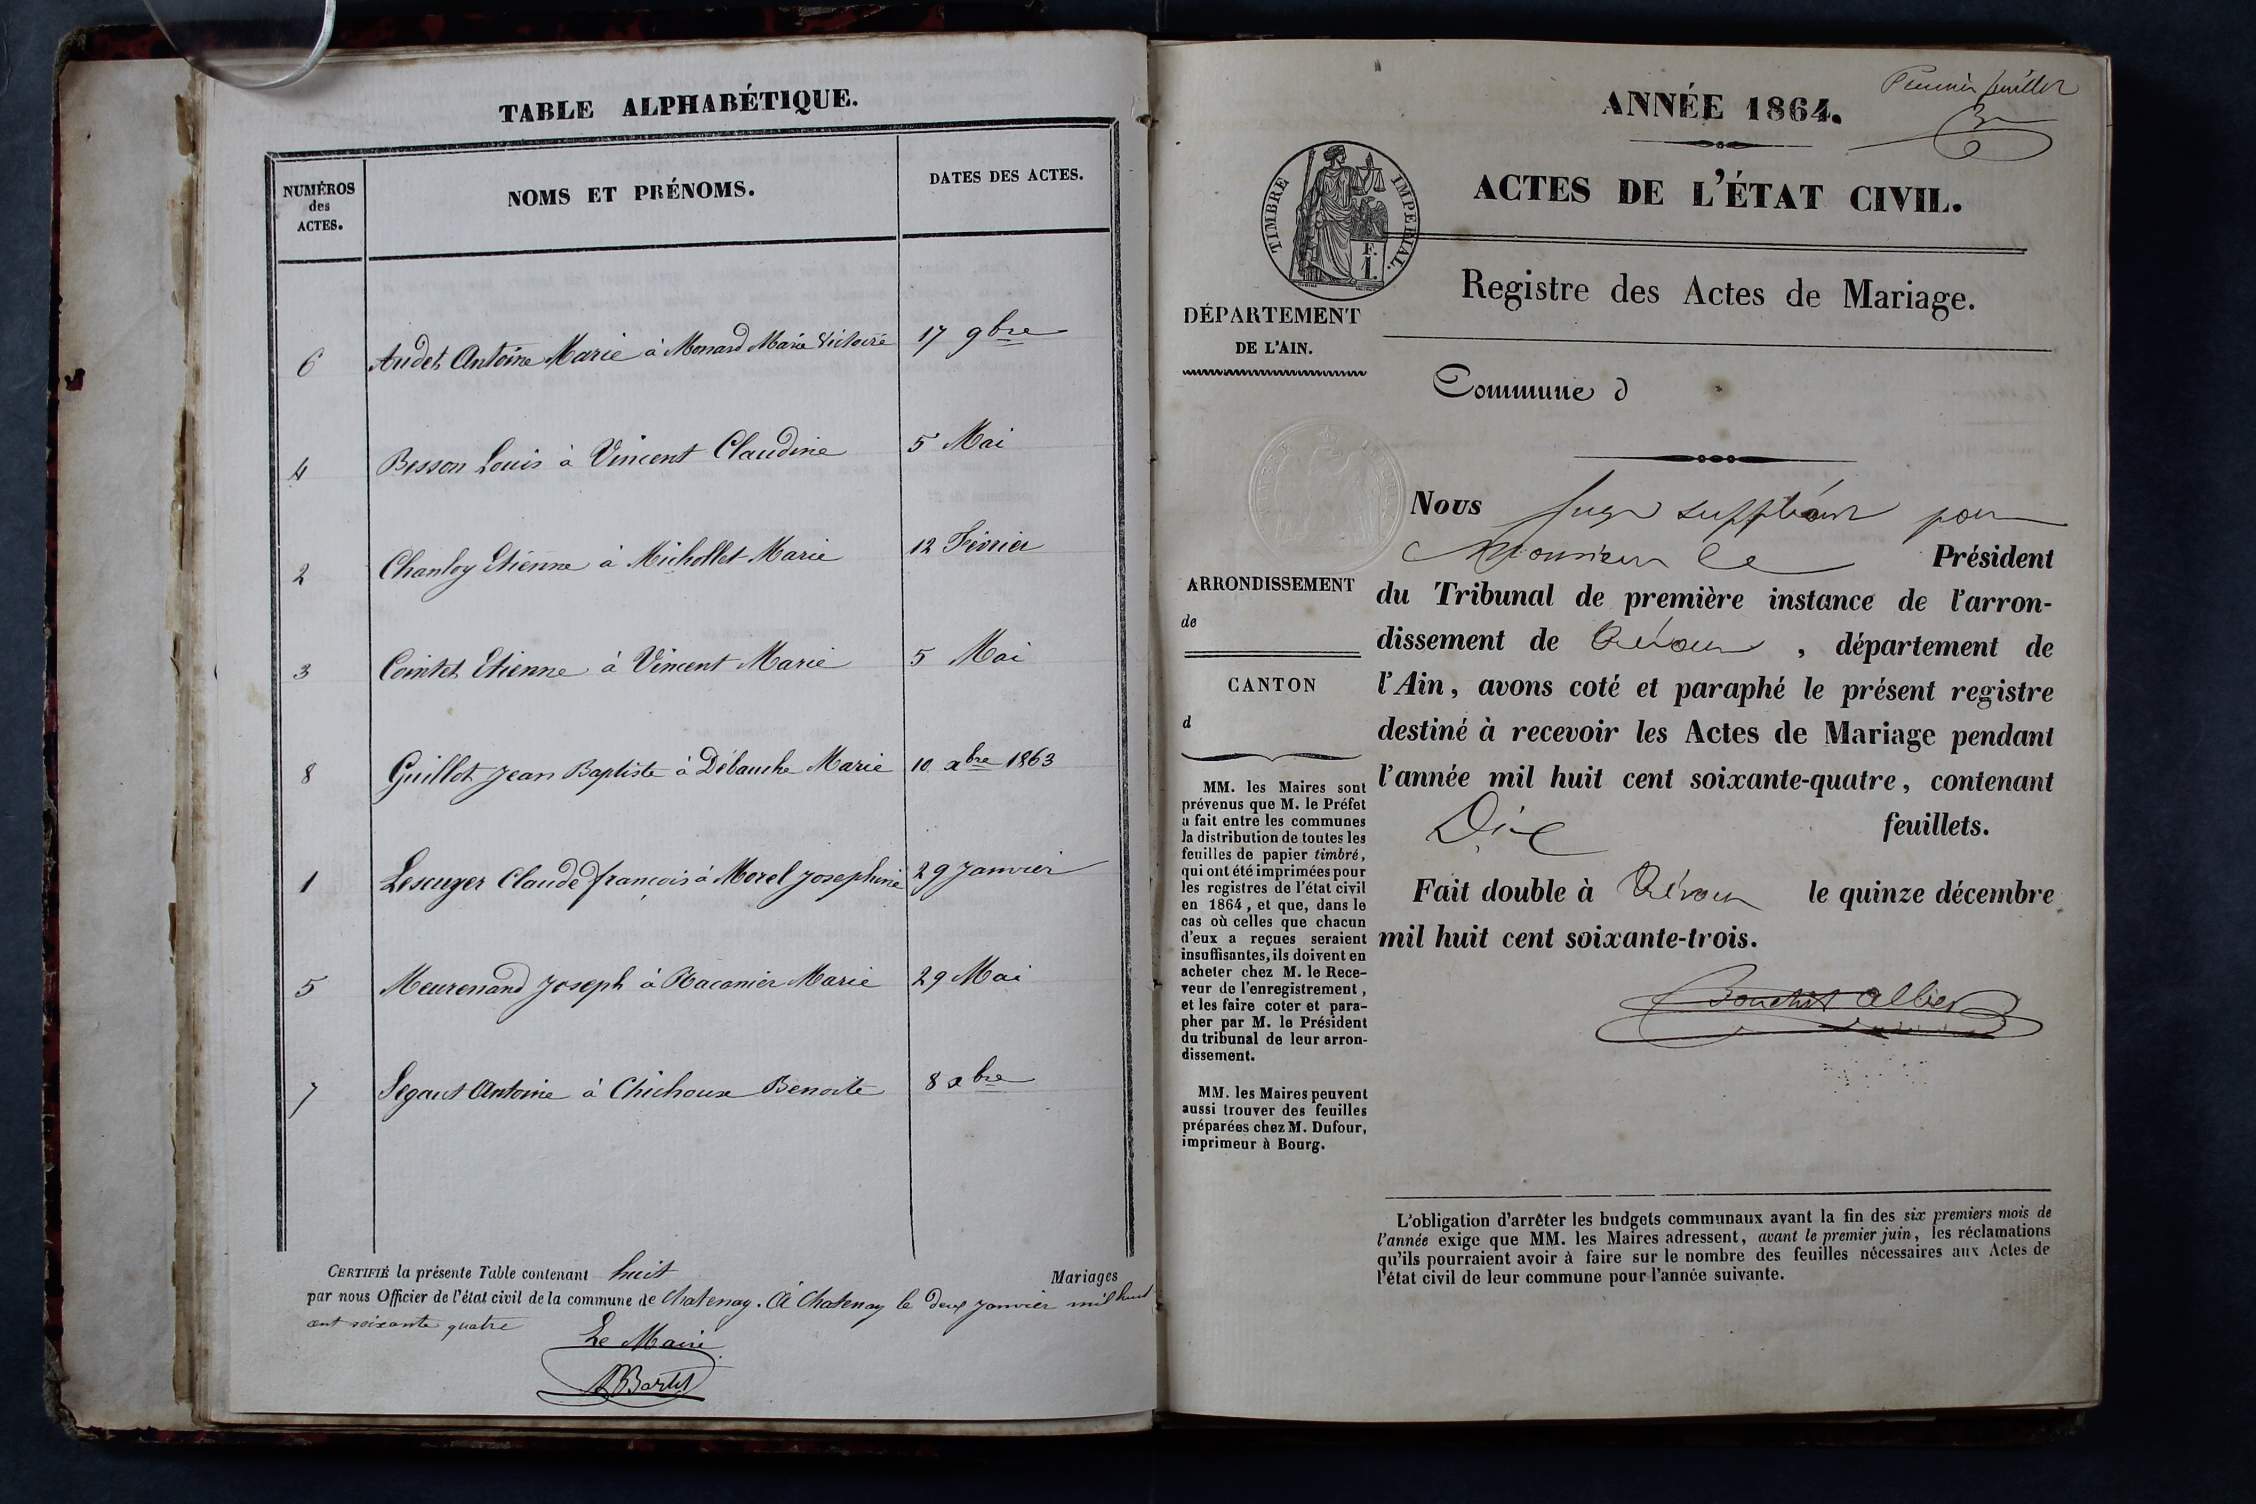 TABLE ALPHABÉTIQUE.
NUMÉROS
des
ACTES.
NOMS ET PRÉNOMS.
DATES DES ACTES.
6 Audet Antoine Marie à Monard Marie Victoire 17 9bre
4 Besson Louis à Vincent Claudine 5 Mai
2 Chanloy Etienne à Michollet Marie 12 Février
3 Cointet Etienne à Vincent Marie 5 Mai
8 Guillot Jean Baptiste à Débauche Marie 10 xbre 1863
1 Lescuyer Claude françois à Morel Josephine 29 Janvier
5 Meurenand Joseph à Marie 29 Mai
7 Segaut Antoine à Chichoux Benoite 8 xbre
CERTIFIÉ la présente Table contenant huit Mariages
par nous Officier de l'état civil de la commune de Chatenay. A Chatenay le deux Janvier mil huit
cent soixante quatre
Le Maire
Premier feuillet
ANNÉE 1864.
TIMBRE IMPERIAL.
F.
1.
ACTES DE L'ÉTAT CIVIL.
Registre des Actes de Mariage.
DÉPARTEMENT
DE L'AIN.
Commune d
ARRONDISSEMENT
de
CANTON
d
MM. les Maires sont
prévenus que M. le Préfet
a fait entre les communes
la distribution de toutes les
feuilles de papier timbré,
qui ont été imprimées pour
les registres de l'état civil
en 1864, et que, dans le
cas où celles que chacun
d'eux a reçues seraient
insuffisantes, ils doivent en
acheter chez M. le Rece-
veur de l'enregistrement,
et les faire coter et para-
pher par M. le Président
du tribunal de leur arron-
dissement.
MM. les Maires peuvent
aussi trouver des feuilles
préparées chez M. Dufour,
imprimeur à Bourg.
Nous Juge suppléant pour
Monsieur le Président
du Tribunal de première instance de l'arron-
dissement de Trévoux, département de
l'Ain, avons coté et paraphé le présent registre
destiné à recevoir les Actes de Mariage pendant
l'année mil huit cent soixante-quatre, contenant
Dix feuillets.
Fait double à Trévoux le quinze décembre
mil huit cent soixante-trois.
L'obligation d'arrêter les budgets communaux avant la fin des six premiers mois de
l'année exige que MM. les Maires adressent, avant le premier juin, les réclamations
qu'ils pourraient avoir à faire sur le nombre des feuilles nécessaires aux Actes de
l'état civil de leur commune pour l'année suivante.